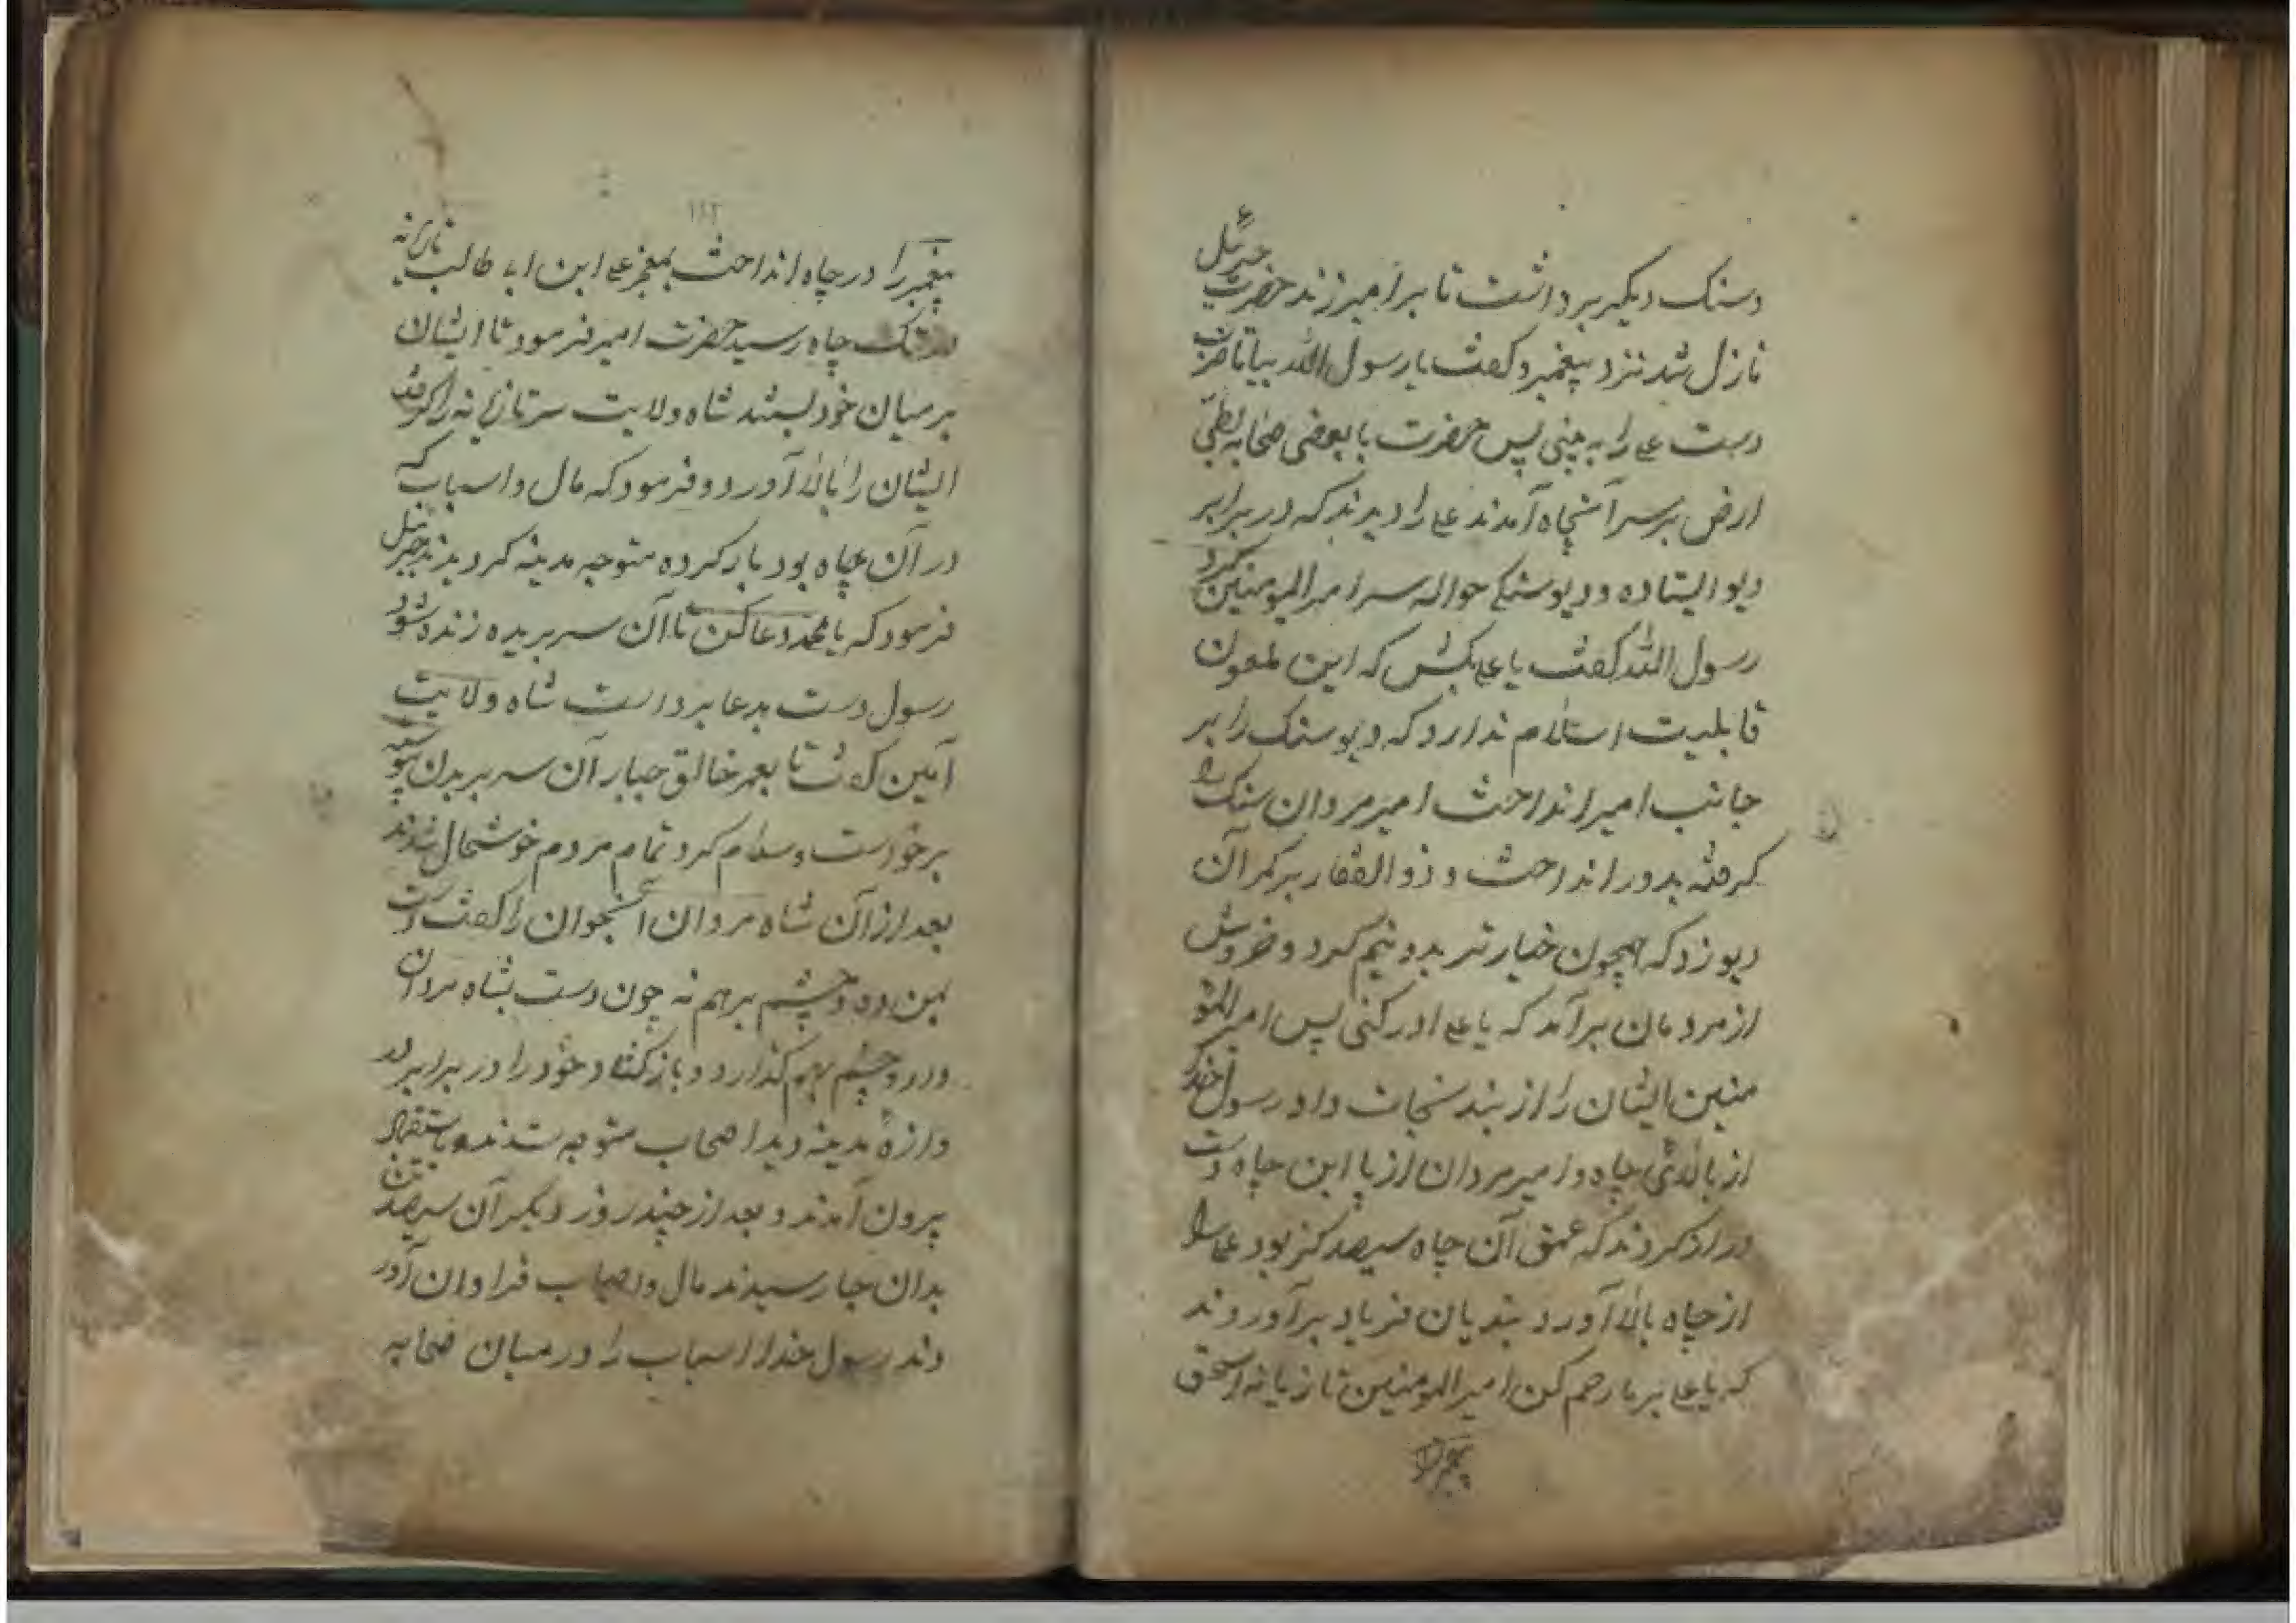 وسنک دیکر برداشت تا بر امیر زند حضرت جبرئیل ع
نازل شد نزد پیغمبر و کفت یا رسول الله بیا تا ضرب
دست علی را به بینی پس حضرت با بعضی صحابه بطی
ارض بر سر آنچاه آمدند علی را دیدند که در برابر
دیو ایستاده و دیو سنکی حواله سر امیر المومنین کرد
رسول الله کفت یا علی بکش که این ملعون
قابلیت اسلام ندارد که دیو سنک را بر
جانب امیر انداخت امیر مردان سنک را
کرفته بدور انداخت و ذوالفقار بر کمر آن
دیو زد که همچون خیار تر بدو نیم کرد و خروش
از مردمان برآمد که یا علی ادرکنی پس امیر المو
منین ایشان را از بند نجات داد رسول خدا
از بالائی چاه و امیر مردان از پایین چاه دست
دراز کردند که عمق آن چاه سیصد کز بود
از چاه بالا آورد بندیان فریاد برآوردند
که یا علی بر ما رحم کن امیر المومنین تازیانه اسحق
پیغمبر را
۱۱۲
پیغمبر را در چاه انداخت بمعجز علی ابن ابی طالب تازیانه
در تک چاه رسید حضرت امیر فرمود تا ایشان
بر میان خود بستند شاه ولایت سر تازیانه را کرفت
ایشان را بالا آورد و فرمود که مال و اسباب که
در آن چاه بود بار کرده متوجه مدینه کردیدند جبرئیل
فرمود که یا محمد دعا کن تا آن سر بریده زنده شود
رسول دست بدعا برداشت شاه ولایت
آمین کفت تا بعمر خالق جبار آن سر ببدن
برخواست و سلام کرد تمام مردم خوشحال شدند
بعد از آن شاه مردان آنجوان را کفت دست
بمن ده و چشم بر هم نه چون دست بشاه مردان
داد و چشم بهم کذارد و باز کشاد خود را در برابر در
وازه مدینه دید اصحاب متوجه شدند باستقبال
بیرون آمدند و بعد از چند روز دیکر آن سیصد تن
بدان جا رسیدند مال و اسباب فراوان آور
دند رسول خدا اسباب را در میان صحابه